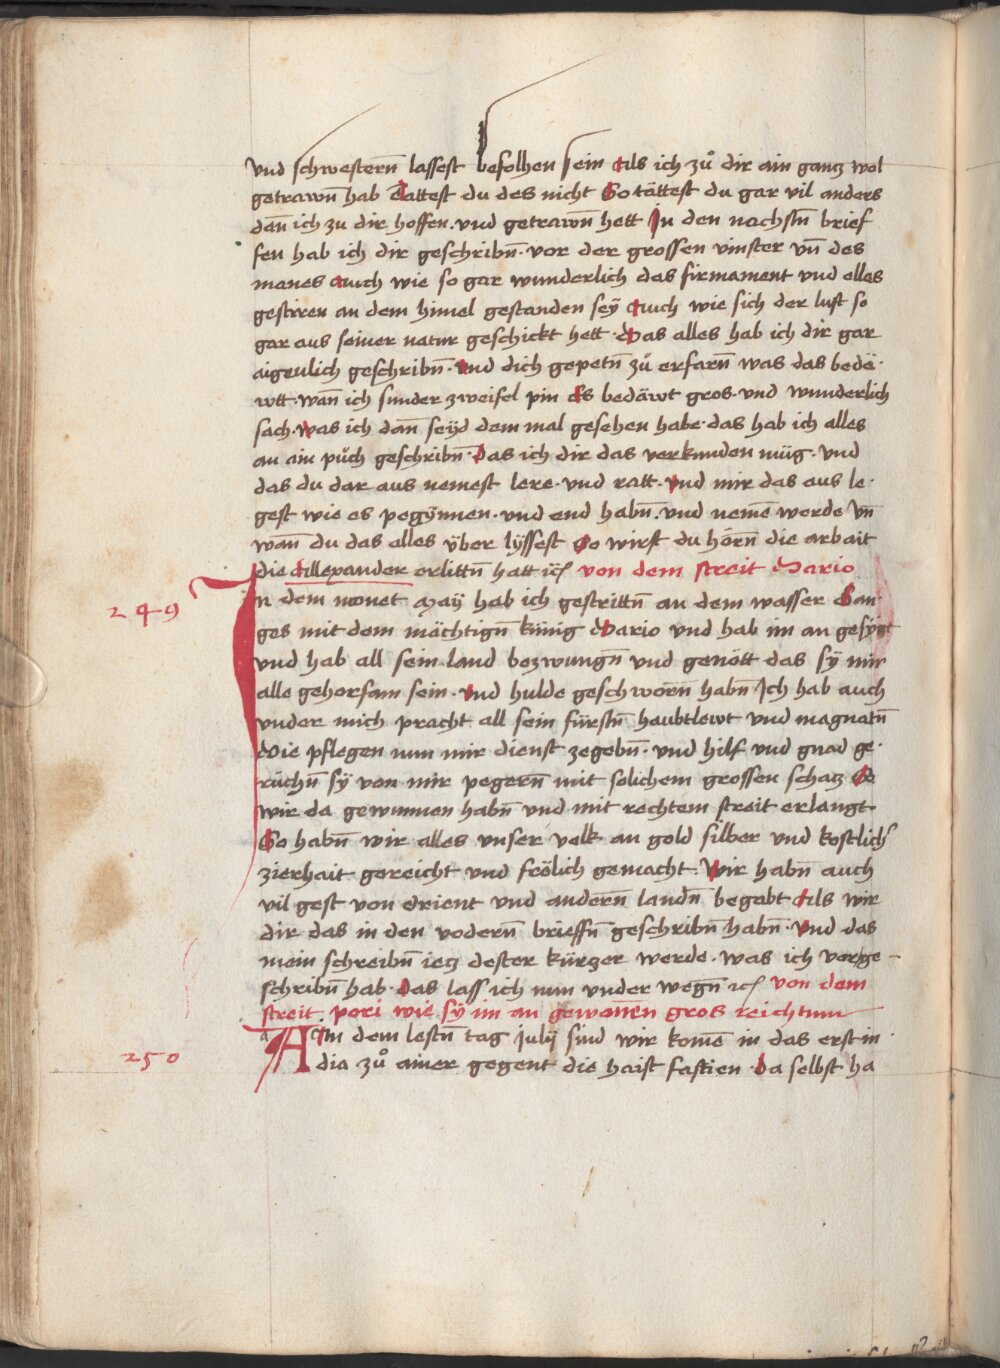 vnd schwestern̄ lassest befolhen sein Als ich zů dir ain gantz wol
getrawn̄ hab Tättest du des nicht So tättest du gar vil anders
dan̄ ich zu dir hoffen. vnd getrawn̄ hett In den nachstn̄ brief
fen hab ich dir geschribn̄. vor der grossen vinster vn̄ des
manes Auch wie so gar wunderlich das firmament vnd alles
gestiren an dem himel gestanden seÿ Auch wie sich der luft so
gar aus seiner natur geschickt hett. Das alles hab ich dir gar
aigenlich geschribn̄. Vnd dich gepetn̄ zů erfarn̄ was das bedä.
wtt. wan̄ ich sunder zweifel pin Es bedäwt gros. vnd wunderlich
sach. Was ich dan̄ seÿd dem mal gesehen habe. das hab ich alles
an ain půch geschribn̄. Das ich dir das verkunden müg. vnd
das du dar aus nemest lere. vnd ratt. Vnd mir das aus le.
gest wie es pegÿnnen. vnd end habn̄. vnd neme̅ werde vn̄
wan̄ du das alles ÿber lÿssest So wirst du hörn̄ die arbait
die Allexander erlittn̄ hatt ꝛc von dem streit Dario
249
In dem monet Maÿ hab ich gestrittn̄ an dem wasser Gan
ges mit dem mächtign̄ künig Dario vnd hab im an gesÿgt
vnd hab all sein land bezwungn̄ vnd genött das sÿ mir
alle gehorsam sein. Vnd hulde geschworn̄ habn̄ Ich hab auch
vnder mich pracht all sein fürstn̄ haubtlewt vnd magnatn̄
Die pflegen nun mir dienst zegebn̄. vnd hilf vnd gnad ge.
rüchn̄ sÿ von mir pegern̄ mit solichem grossen schatz So
wir da gewunnen habn̄ vnd mit rechtem streit erlangt
So habn̄ wir alles vnser volk an gold silber vnd kostlich
zierhait gereicht vnd frölich gemacht. Wir habn̄ auch
vil gest von Orient vnd andern̄ landn̄ begabt Als wir
dir das in den vodern̄ brieffn̄ geschribn̄ habn̄. Vnd das
mein schreibn̄ ietz dester kürtzer werde. was ich vor ge–
schribn̄ hab. Das lass ich nun vnder wegn̄ ꝛc von dem
streit. pori wie sÿ im an gewonnen gros reichtum
250
a Am dem lestn̄ tag Julÿ sind wir kome̅ in das erst in.
dia zů ainer gegent die haist fastien. Da selbst ha